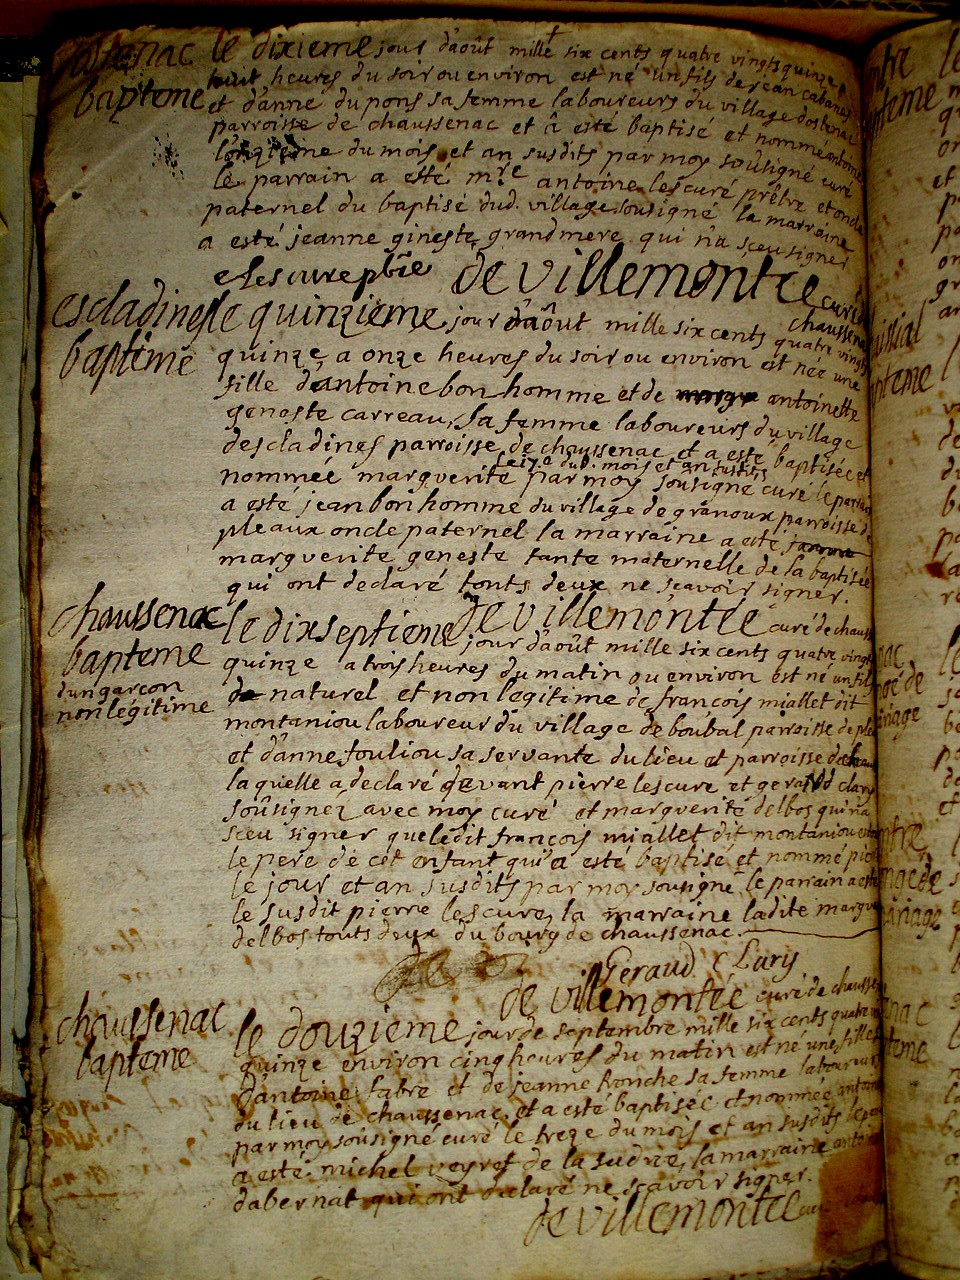 ostenac
bapteme
le dixieme jour d'août mille six cents quatre vingts quinze a
huit heures du soir ou environ est né un fils de jean cabanes
et d'anne du pons sa femme laboureurs du village dostenac
parroisse de chaussenac et a esté baptisé et nommé antoine
l'onzieme du mois et an susdits par moy soûsigné curé
le parrain a esté mre antoine lescuré prêtre et oncle
paternel du baptisé dud. village soussigné la marraine
a esté jeanne gineste grandmere qui n'a sceu signer
de villemontée curé
chaussenac
escladines
bapteme
le quinzieme jour d'août mille six cents quatre vingts
quinze a onze heures du soir ou environ est née une
fille d'antoine bonhomme et de antoinette
geneste carreau, sa femme laboureurs du village
descladines parroisse de chaussenac et a esté baptisée et
le 17e dud. mois et an susdits
nommée marguerite par moy sousigné curé le parrain
a esté jean bonhomme du village de granoux parroisse de
pleaux oncle paternel la marraine a esté
marguerite geneste tante maternelle de la baptisée
qui ont declaré touts deux ne scavoir signer.
de villemontée curé de chauss
chaussenac
bapteme
dun garcon
non légitime
le dixseptieme jour d'août mille six cents quatre vingt
quinze a trois heures du matin ou environ est né un fils
naturel et non légitime de françois miallet dit
montaniou laboureur du village de boubal parroisse de
et d'anne fouliou sa servante du lieu et parroisse de chau
laquelle a declaré devant pierre lescure et gerauld clary
soûsignez avec moy curé et marguerite delbos qui n'a
sceu signer que ledit françois miallet dit montaniou
le pere de cet enfant qui a esté baptisé et nommé pier
le jour et an susdits par moy sousigné, le parrain a esté
le susdit pierre lescure, la marraine ladite margue
delbos touts deux du bourg de chaussenac.
Geraud Clary
de villemontée curé de chaussen
chaussenac
bapteme
le douzieme jour de septembre mille six cents quatre
quinze environ cinq heures du matin est née une fille
d'antoine fabre et de jeanne Ronche sa femme laboureurs
du lieu de chaussenac, et a esté baptisée et nommée antoin
par moy sousigné curé le treze du mois et an susdits le
a esté michel veyres de la sudrie, la marraine antoin
dabernat qui ont declaré ne scavoir signer.
de villemontée